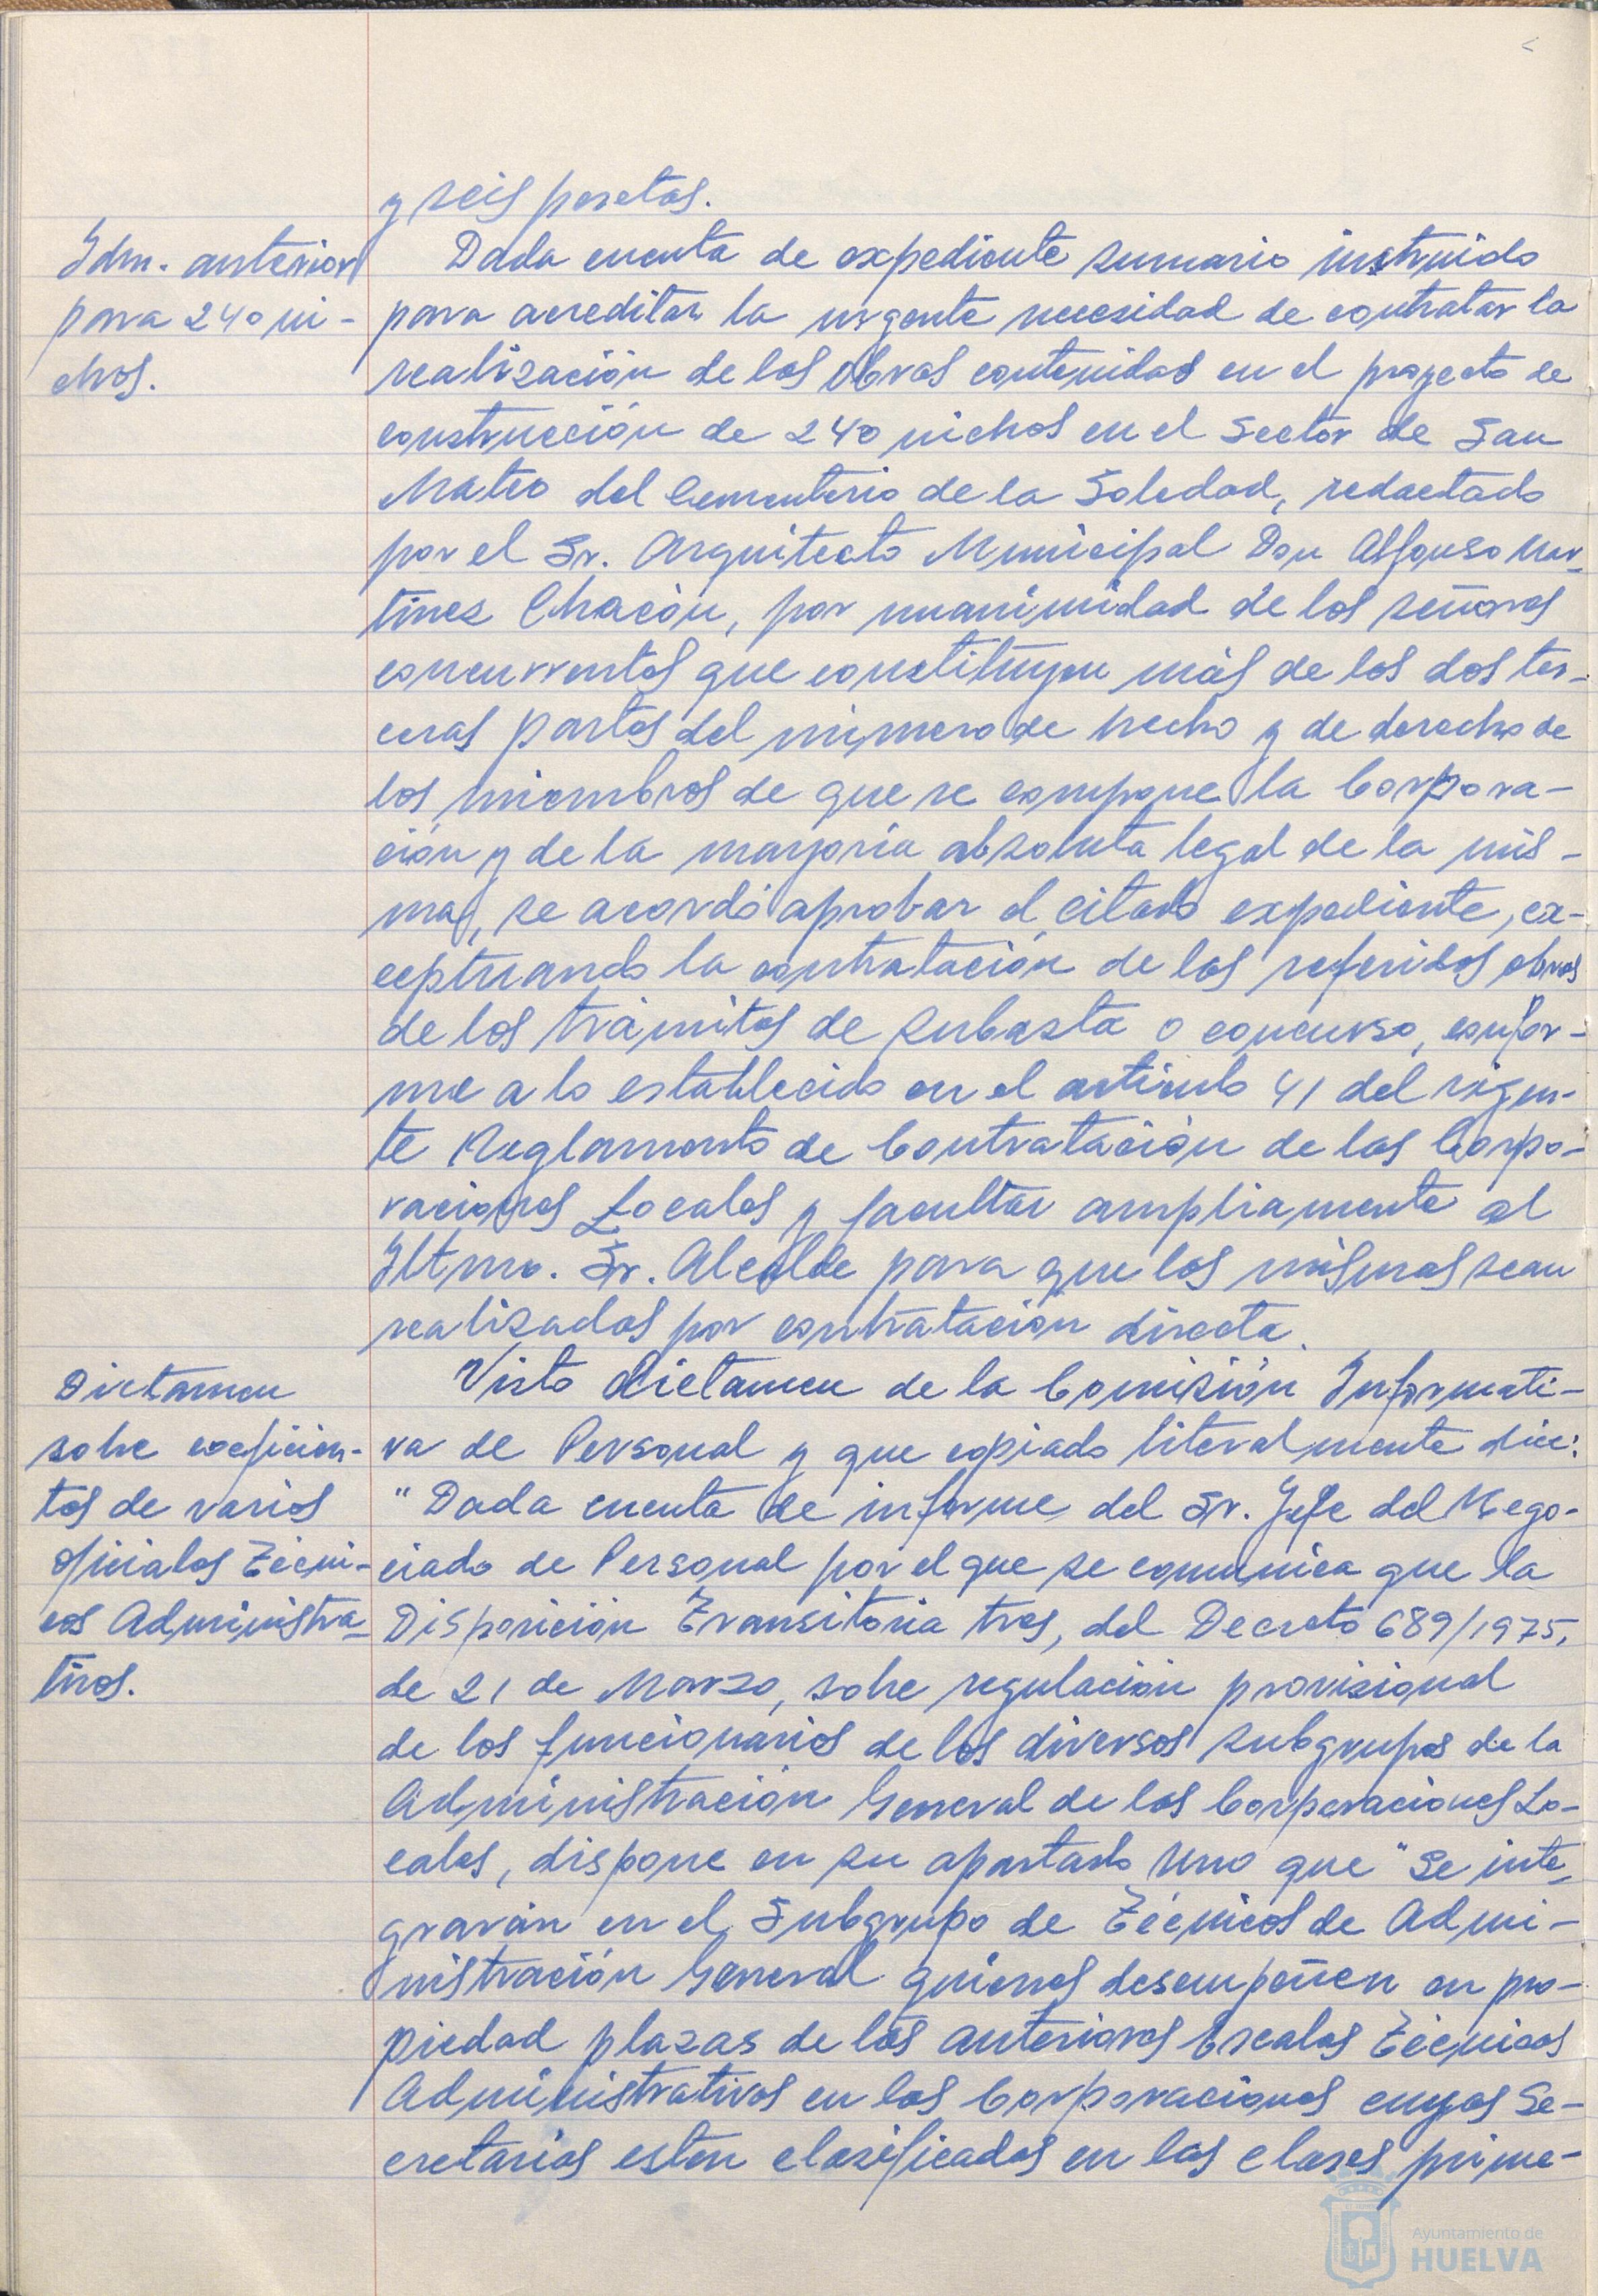 y seis pesetas.
Idm. anterior
para 240 ni-
chos.
Dada cuenta de expediente sumario instruido
para acreditar la urgente necesidad de contratar la
realización de las obras contenidas en el proyecto de
construcción de 240 nichos en el Sector de San
Mateo del Cementerio de la Soledad, redactado
por el Sr. Arquitecto Municipal Don Alfonso Mar-
tínez Chacón, por unanimidad de los señores
concurrentes que constituyen más de las dos ter-
ceras partes del número de hecho y de derecho de
los miembros de que se compone la Corpora-
ción y de la mayoría absoluta legal de la mis-
ma, se acordó aprobar el citado expediente, ex-
ceptuando la contratación de las referidas obras
de los trámites de subasta o concurso, confor-
me a lo establecido en el artículo 41 del vigen-
te Reglamento de Contratación de las Corpo-
raciones Locales y facultar ampliamente al
Iltmo. Sr. Alcalde para que las mismas sean
realizadas por contratación directa.
Dictamen
sobre coeficien-
tes de varios
oficiales Técni-
cos Administra-
tivos.
Visto dictamen de la Comisión Informati-
va de Personal y que copiado literalmente dice:
"Dada cuenta de informe del Sr. Jefe del Nego-
ciado de Personal por el que se comunica que la
Disposición Transitoria tres, del Decreto 689/1975,
de 21 de Marzo, sobre regulación provisional
de los funcionarios de los diversos subgrupos de la
Administración General de las Corporaciones Lo-
cales, dispone en su apartado uno que "Se inte-
grarán en el Subgrupo de Técnicos de Admi-
nistración General quienes desempeñen en pro-
piedad plazas de las anteriores Escalas Técnicas
Administrativas en las Corporaciones cuyas Se-
cretarías esten clasificadas en las clases prime-
Ayuntamiento de
HUELVA